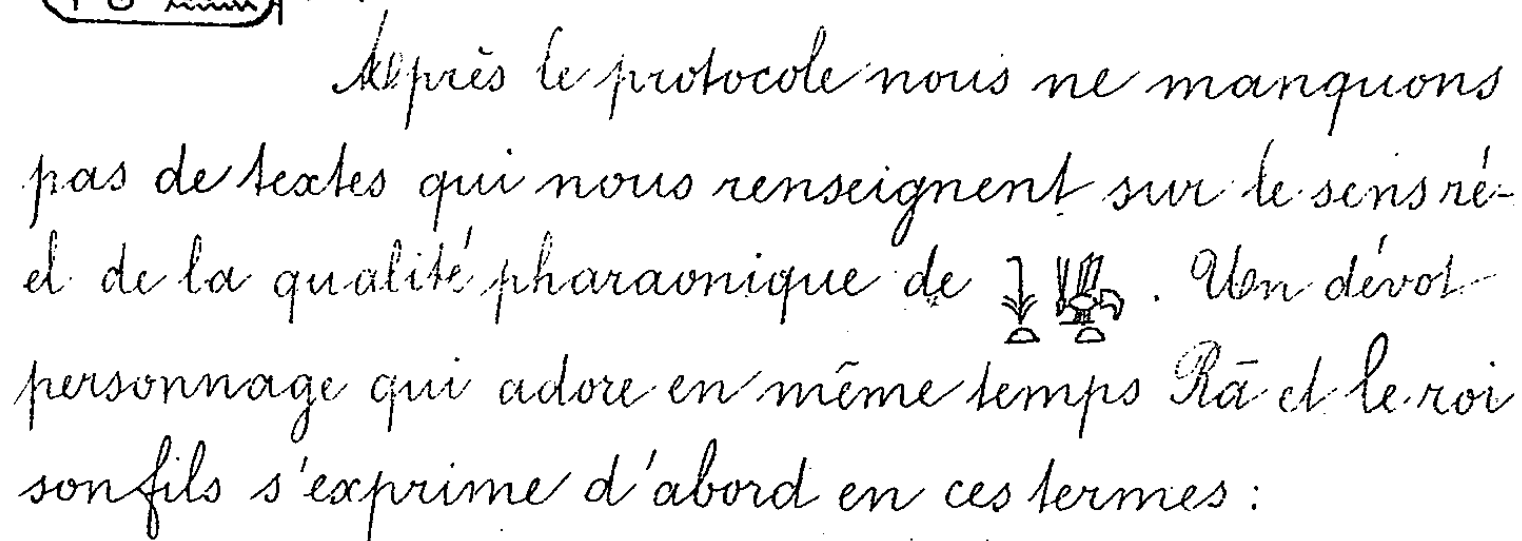 Après le protocole nous ne manquons
pas de textes qui nous renseignent sur le sens ré-
el de la qualité pharaonique de . Un dévot
personnage qui adore en même temps Rā et le roi
son fils s'exprime d'abord en ces termes :